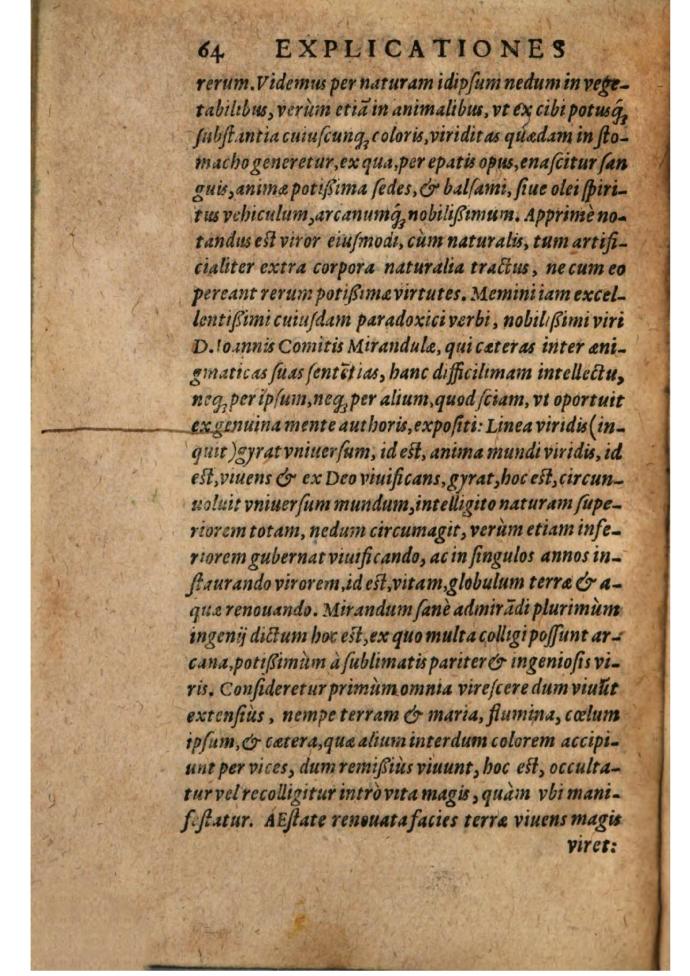 64 EXPLICATIONES
rerum. Videmus per naturam idipſum nedum in vege-
tabilibus, verùm etiã in animalibus, vt ex cibi potusq́;
ſubſtantia cuiuſcunq; coloris, viriditas quædam in ſto-
macho generetur, ex qua, per epatis opus, enaſcitur ſan
guis, animæ potißima ſedes, & balſami, ſiue olei ſpiri-
tus vehiculum, arcanumq́; nobilißimum. Apprimè no-
tandus est viror eiuſmodi, cùm naturalis, tum artifi-
cialiter extra corpora naturalia tractus, ne cum eo
pereant rerum potißimæ virtutes. Memini iam excel-
lentißimi cuiuſdam paradoxici verbi, nobilißimi viri
D. Ioannis Comitis Mirandulæ, qui cæteras inter æni-
gmaticas ſuas ſentẽtias, hanc difficilimam intellectu,
neq; per ipſum, neq; per alium, quod ſciam, vt oportuit
ex genuina mente authoris, expoſiti: Linea viridis (in-
quit) gyrat vniuerſum, id est, anima mundi viridis, id
est, viuens & ex Deo viuificans, gyrat, hoc est, circun-
uoluit vniuerſum mundum, intelligito naturam ſupe-
riorem totam, nedum circumagit, verùm etiam infe-
riorem gubernat viuificando, ac in ſingulos annos in-
ſtaurando virorem, id est, vitam, globulum terræ & a-
quæ renouando. Mirandum ſanè admirãdi plurimùm
ingenij dictum hoc est, ex quo multa colligi poſſunt ar-
cana, potißimùm à ſublimatis pariter & ingenioſis vi-
ris. Conſideretur primùm omnia vireſcere dum viuũt
extenſiùs, nempe terram & maria, flumina, cœlum
ipſum, & cætera, quæ alium interdum colorem accipi-
unt per vices, dum remißiùs viuunt, hoc est, occulta-
tur vel recolligitur intrò vita magis, quàm vbi mani-
feſtatur. AEſtate renouata facies terræ viuens magis
viret: